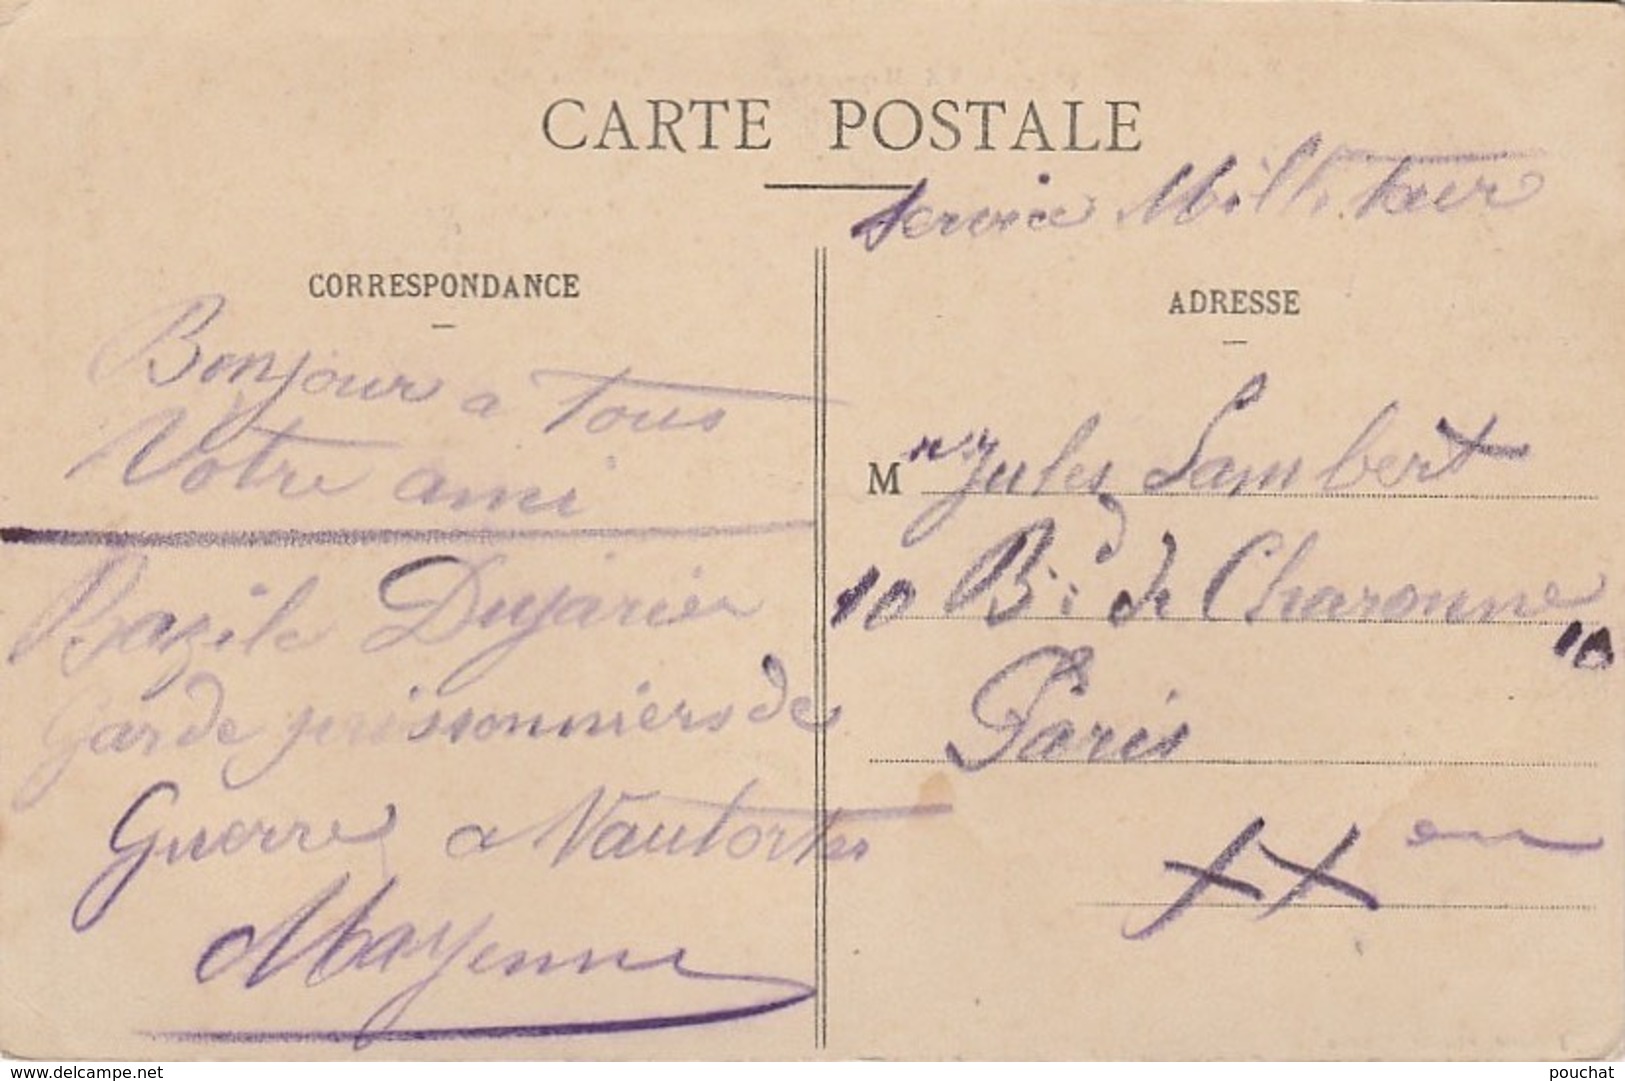 CARTE POSTALE
Service Militaire
CORRESPONDANCE
Bonjour a Tous
Votre ami
Bazile Dujarier
Garde prissonniers de
Guerre a Vautorte
Mayenne
ADRESSE
M Jules Lambert
10 Bd de Charonne 10
Paris
XXem
www.delcampe.net
pouchat